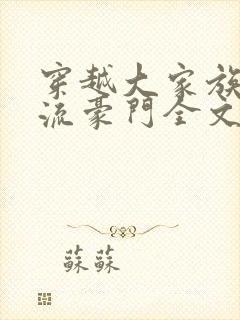 穿越大家族
流豪門全文
蘇蘇